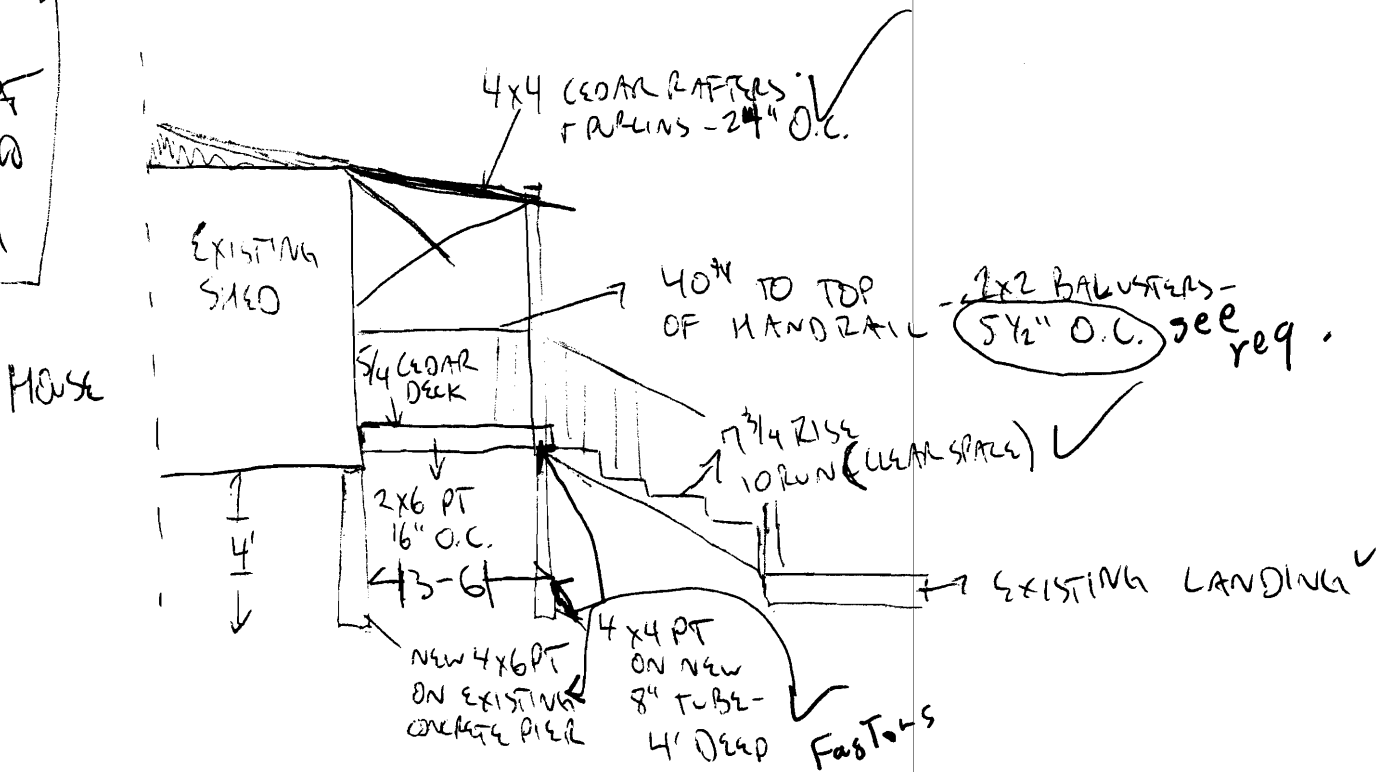 4x4 CEDAR RAFTERS
+ PURLINS - 24" O.C.
EXISTING
SHED
HOUSE
40" TO TOP
OF HANDRAIL
2x2 BALUSTERS-
5½" O.C. see
req.
5/4 CEDAR
DECK
7 3/4 RISE
10 RUN (CLEAR SPACE)
2x6 PT
16" O.C.
4'
3-6
EXISTING LANDING
NEW 4x6 PT
ON EXISTING
CONCRETE PIER
4x4 PT
ON NEW
8" TUBE-
4' DEEP